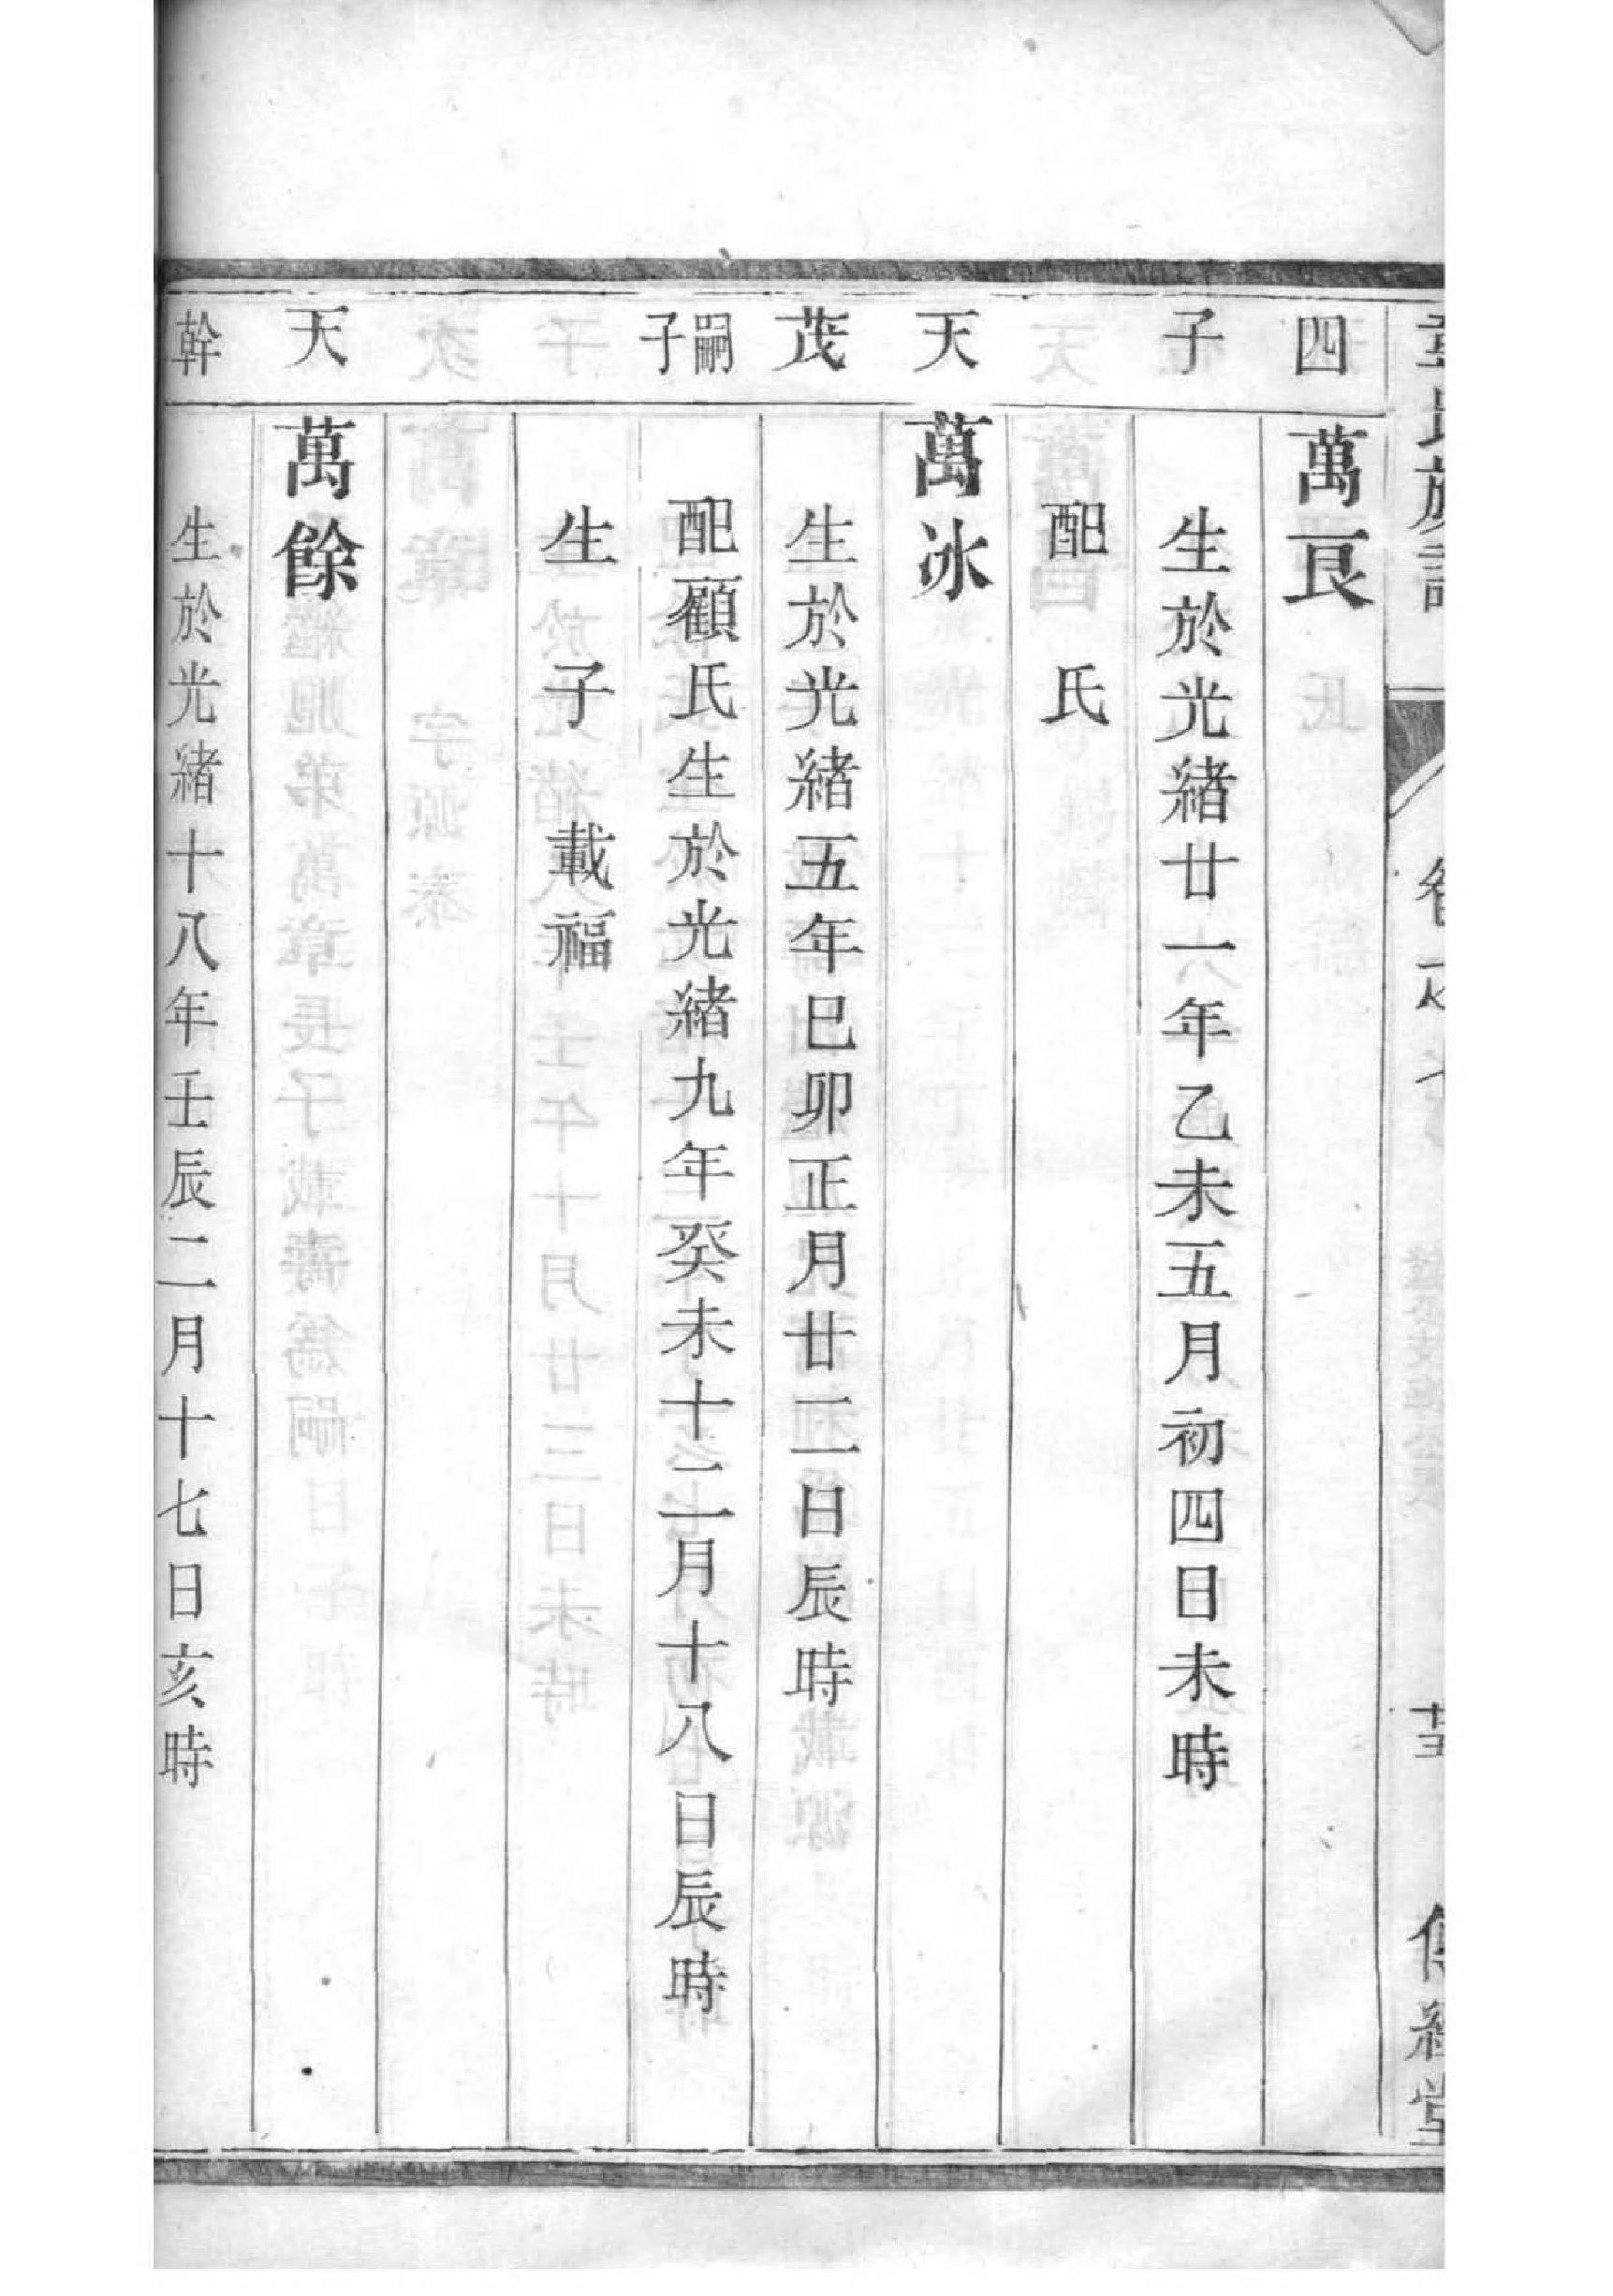 四 萬良
子 生於光緒廿一年乙未五月初四日未時
配 氏
天 萬冰
茂 生於光緒五年巳卯正月廿二日辰時
嗣子 配顧氏生於光緒九年癸未十二月十八日辰時
生子載福
天 萬餘
幹 生於光緒十八年壬辰二月十七日亥時